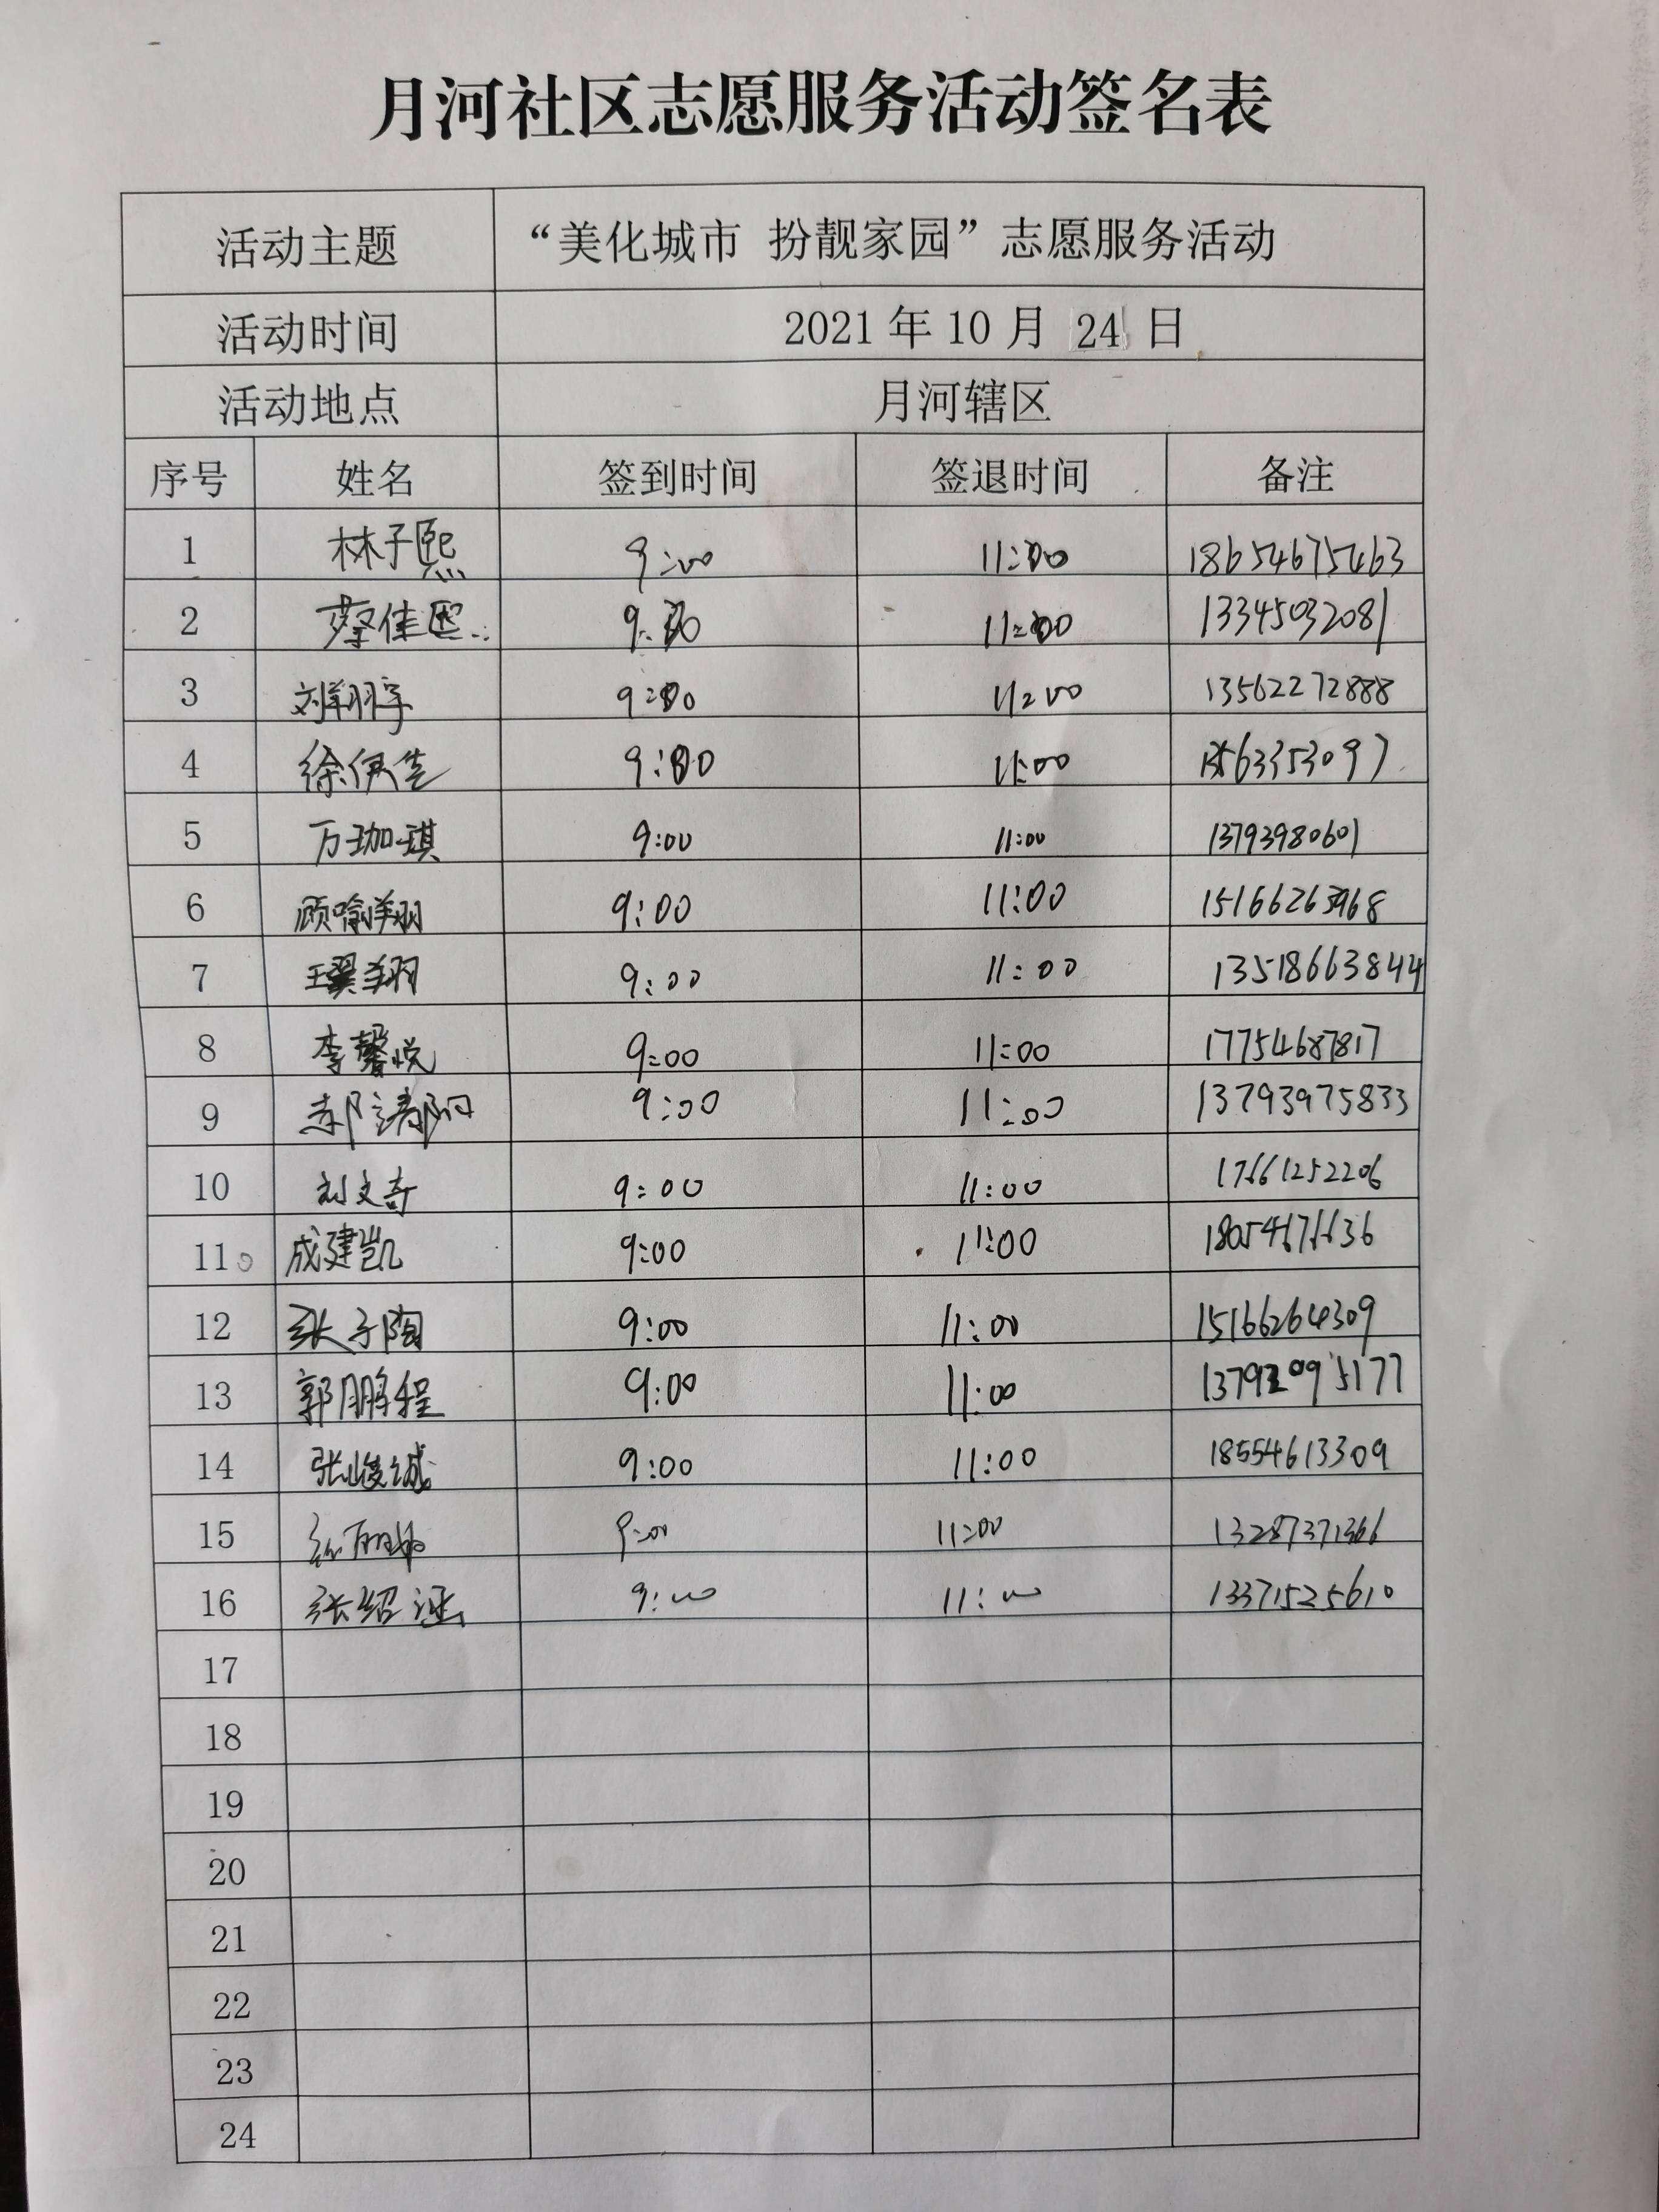 月河社区志愿服务活动签名表
活动主题 “美化城市 扮靓家园”志愿服务活动
活动时间 2021 年 10 月 24 日
活动地点 月河辖区
序号 姓名 签到时间 签退时间 备注
1 林子熙 9:00 11:00 18654675463
2 蔡佳熙 9:00 11:00 13345032081
3 刘翔宇 9:00 11:00 13562272888
4 9:00 11:00
5 万珈琪 9:00 11:00 13793980601
6 顾喻翔 9:00 11:00 15166263968
7 王翼翔 9:00 11:00 13518663844
8 李馨悦 9:00 11:00 17754687817
9 9:00 11:00 13793975833
10 刘文奇 9:00 11:00 17661252206
11 成建凯 9:00 11:00 18054676636
12 张子陶 9:00 11:00 15166264309
13 郭鹏程 9:00 11:00 13792095177
14 张峻诚 9:00 11:00 18554613309
15 9:00 11:00 13287371366
16 张绍涵 9:00 11:00 13371525610
17
18
19
20
21
22
23
24